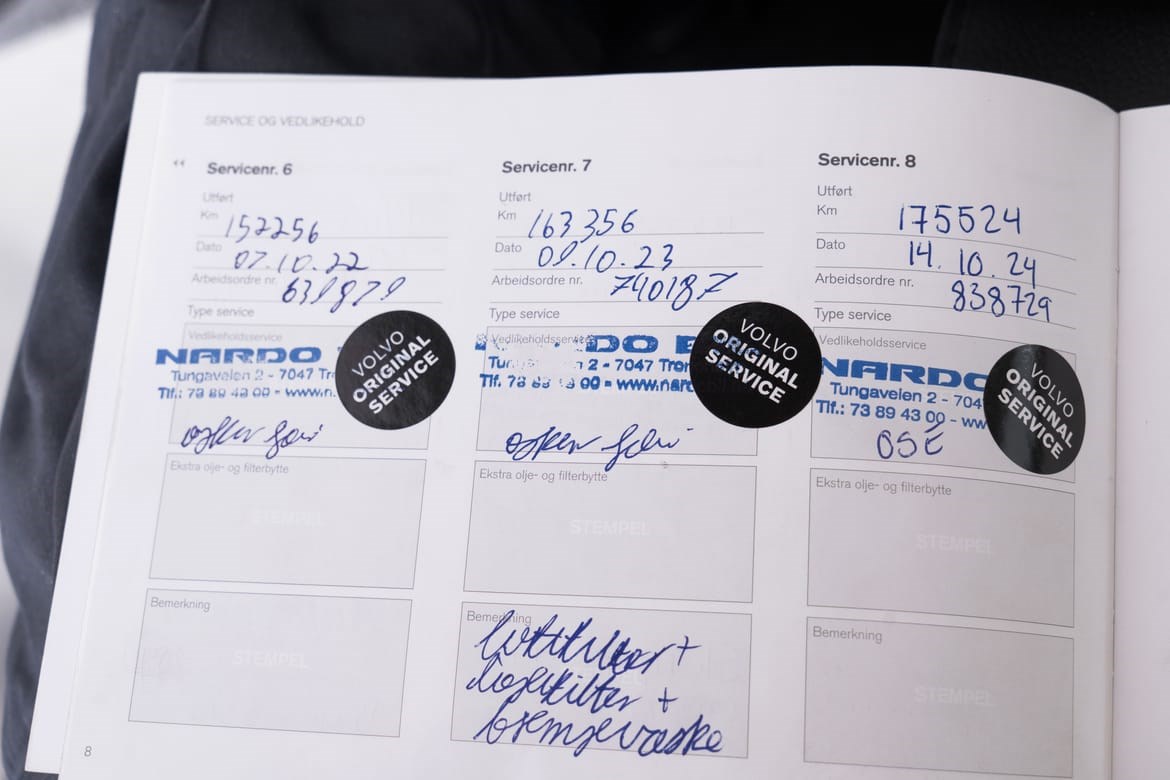 SERVICE OG VEDLIKEHOLD
Servicenr. 6
Utført
Km 152256
Dato 07.10.22
Arbeidsordre nr. 639829
Type service
Vedlikeholdsservice
NARDO
Tungaveien 2 - 7047 Tr
Tlf.: 73 89 43 00 - www.n
VOLVO
ORIGINAL
SERVICE
Ekstra olje- og filterbytte
STEMPEL
Bemerkning
STEMPEL
Servicenr. 7
Utført
Km 163356
Dato 09.10.23
Arbeidsordre nr. 740187
Type service
Vedlikeholdsservice
DO B
Tu 2 - 7047 Tron
Tlf. 73 89 43 00 - www.nard
VOLVO
ORIGINAL
SERVICE
Ekstra olje- og filterbytte
STEMPEL
Bemerkning
luftfilter +
kupefilter +
bremsevæske
Servicenr. 8
Utført
Km 175524
Dato 14.10.24
Arbeidsordre nr. 838729
Type service
Vedlikeholdsservice
NARDO
Tungaveien 2 - 704
Tlf.: 73 89 43 00 - ww
OSE
VOLVO
ORIGINAL
SERVICE
Ekstra olje- og filterbytte
STEMPEL
Bemerkning
STEMPEL
8